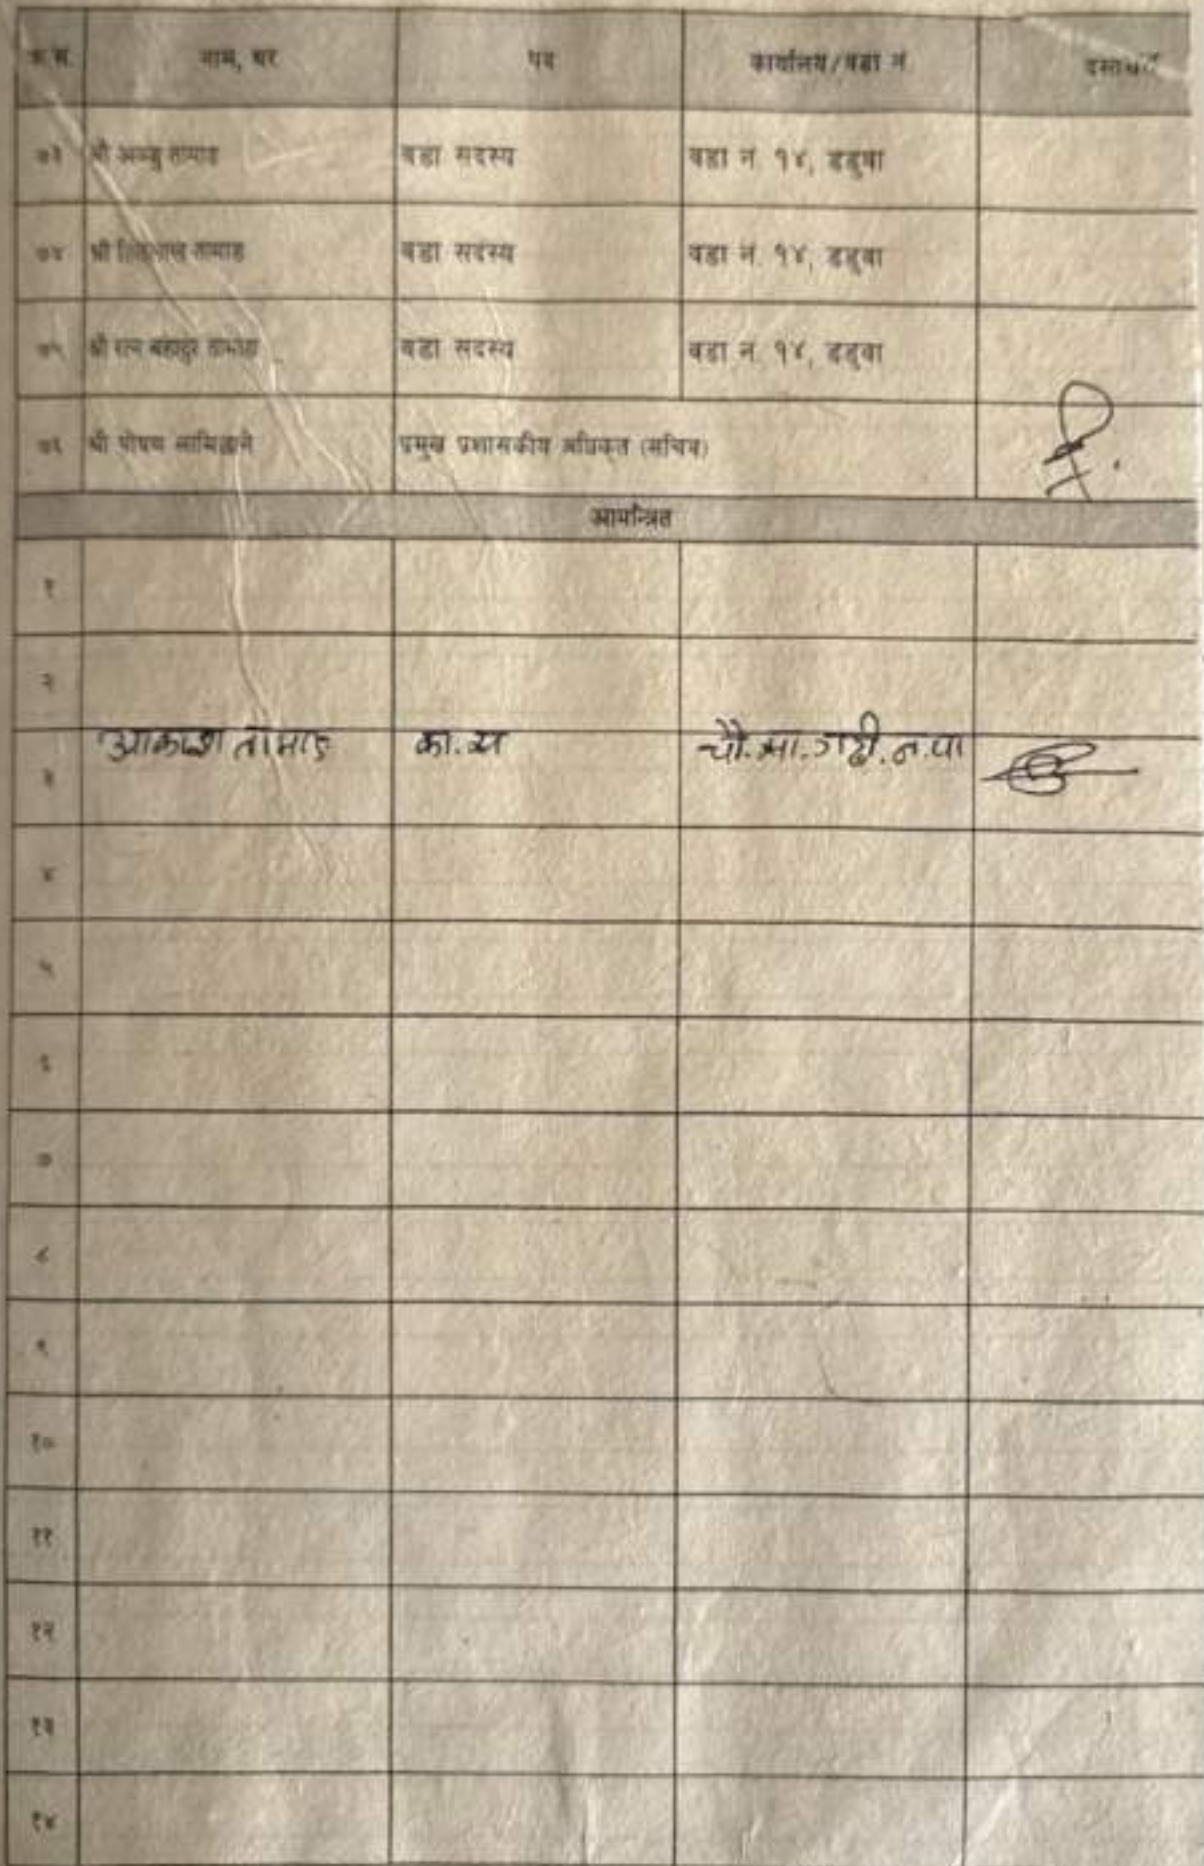 क्र.स. नाम, थर पद कार्यालय/वडा नं दस्तखत
७३ श्री तामाङ वडा सदस्य वडा नं. १४, डडुवा
७४ श्री तामाङ वडा सदस्य वडा नं. १४, डडुवा
७५ श्री रत्न बहादुर तामाङ वडा सदस्य वडा नं. १४, डडुवा
७६ श्री पोषण लामिछाने प्रमुख प्रशासकीय अधिकृत (सचिव)
आमन्त्रित
१
२
३ आकाश तामाङ का.स चौ.सा.गढी.न.पा
४
५
६
७
८
९
१०
११
१२
१३
१४